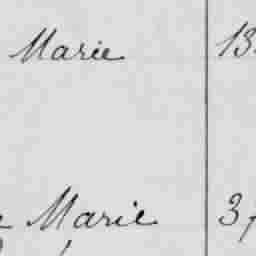 Marie 13
Marie 37